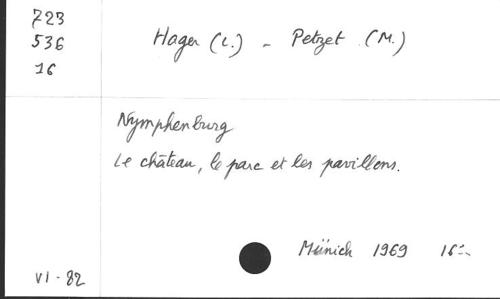 723
536
16
Hager (L.) - Petzet (M.)
Nymphenburg
Le château, le parc et les pavillons.
Münich 1969 16°
VI - 82